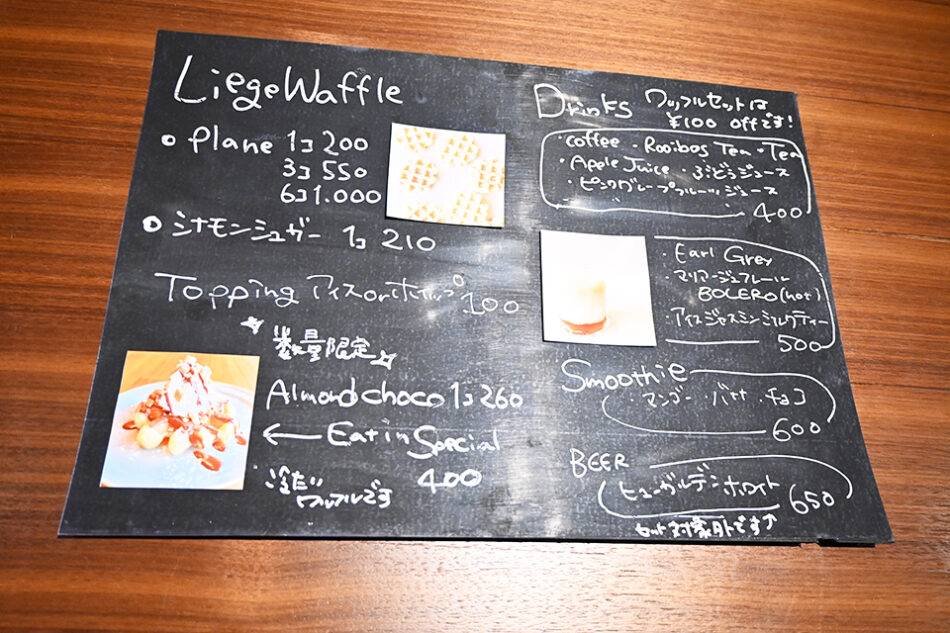 Liege Waffle
• Plane 1コ 200
3コ 550
6コ 1.000
• シナモンシュガー 1コ 210
Topping アイス or ホイップ 100
☆数量限定☆
Almond choco 1コ 260
← Eat in Special
400
冷たい
ワッフルです
Drinks ワッフルセットは
¥100 offです!
・coffee ・Rooibos Tea ・Tea
・Apple Juice ・ぶどうジュース
・ピンクグレープフルーツジュース
400
・Earl Grey
・マリアージュフレール
BOLERO (hot)
・アイスジャスミンミルクティー
500
Smoothie
・マンゴー バナナ チョコ
600
BEER
ヒューガルデンホワイト 650
セット対象外です↑